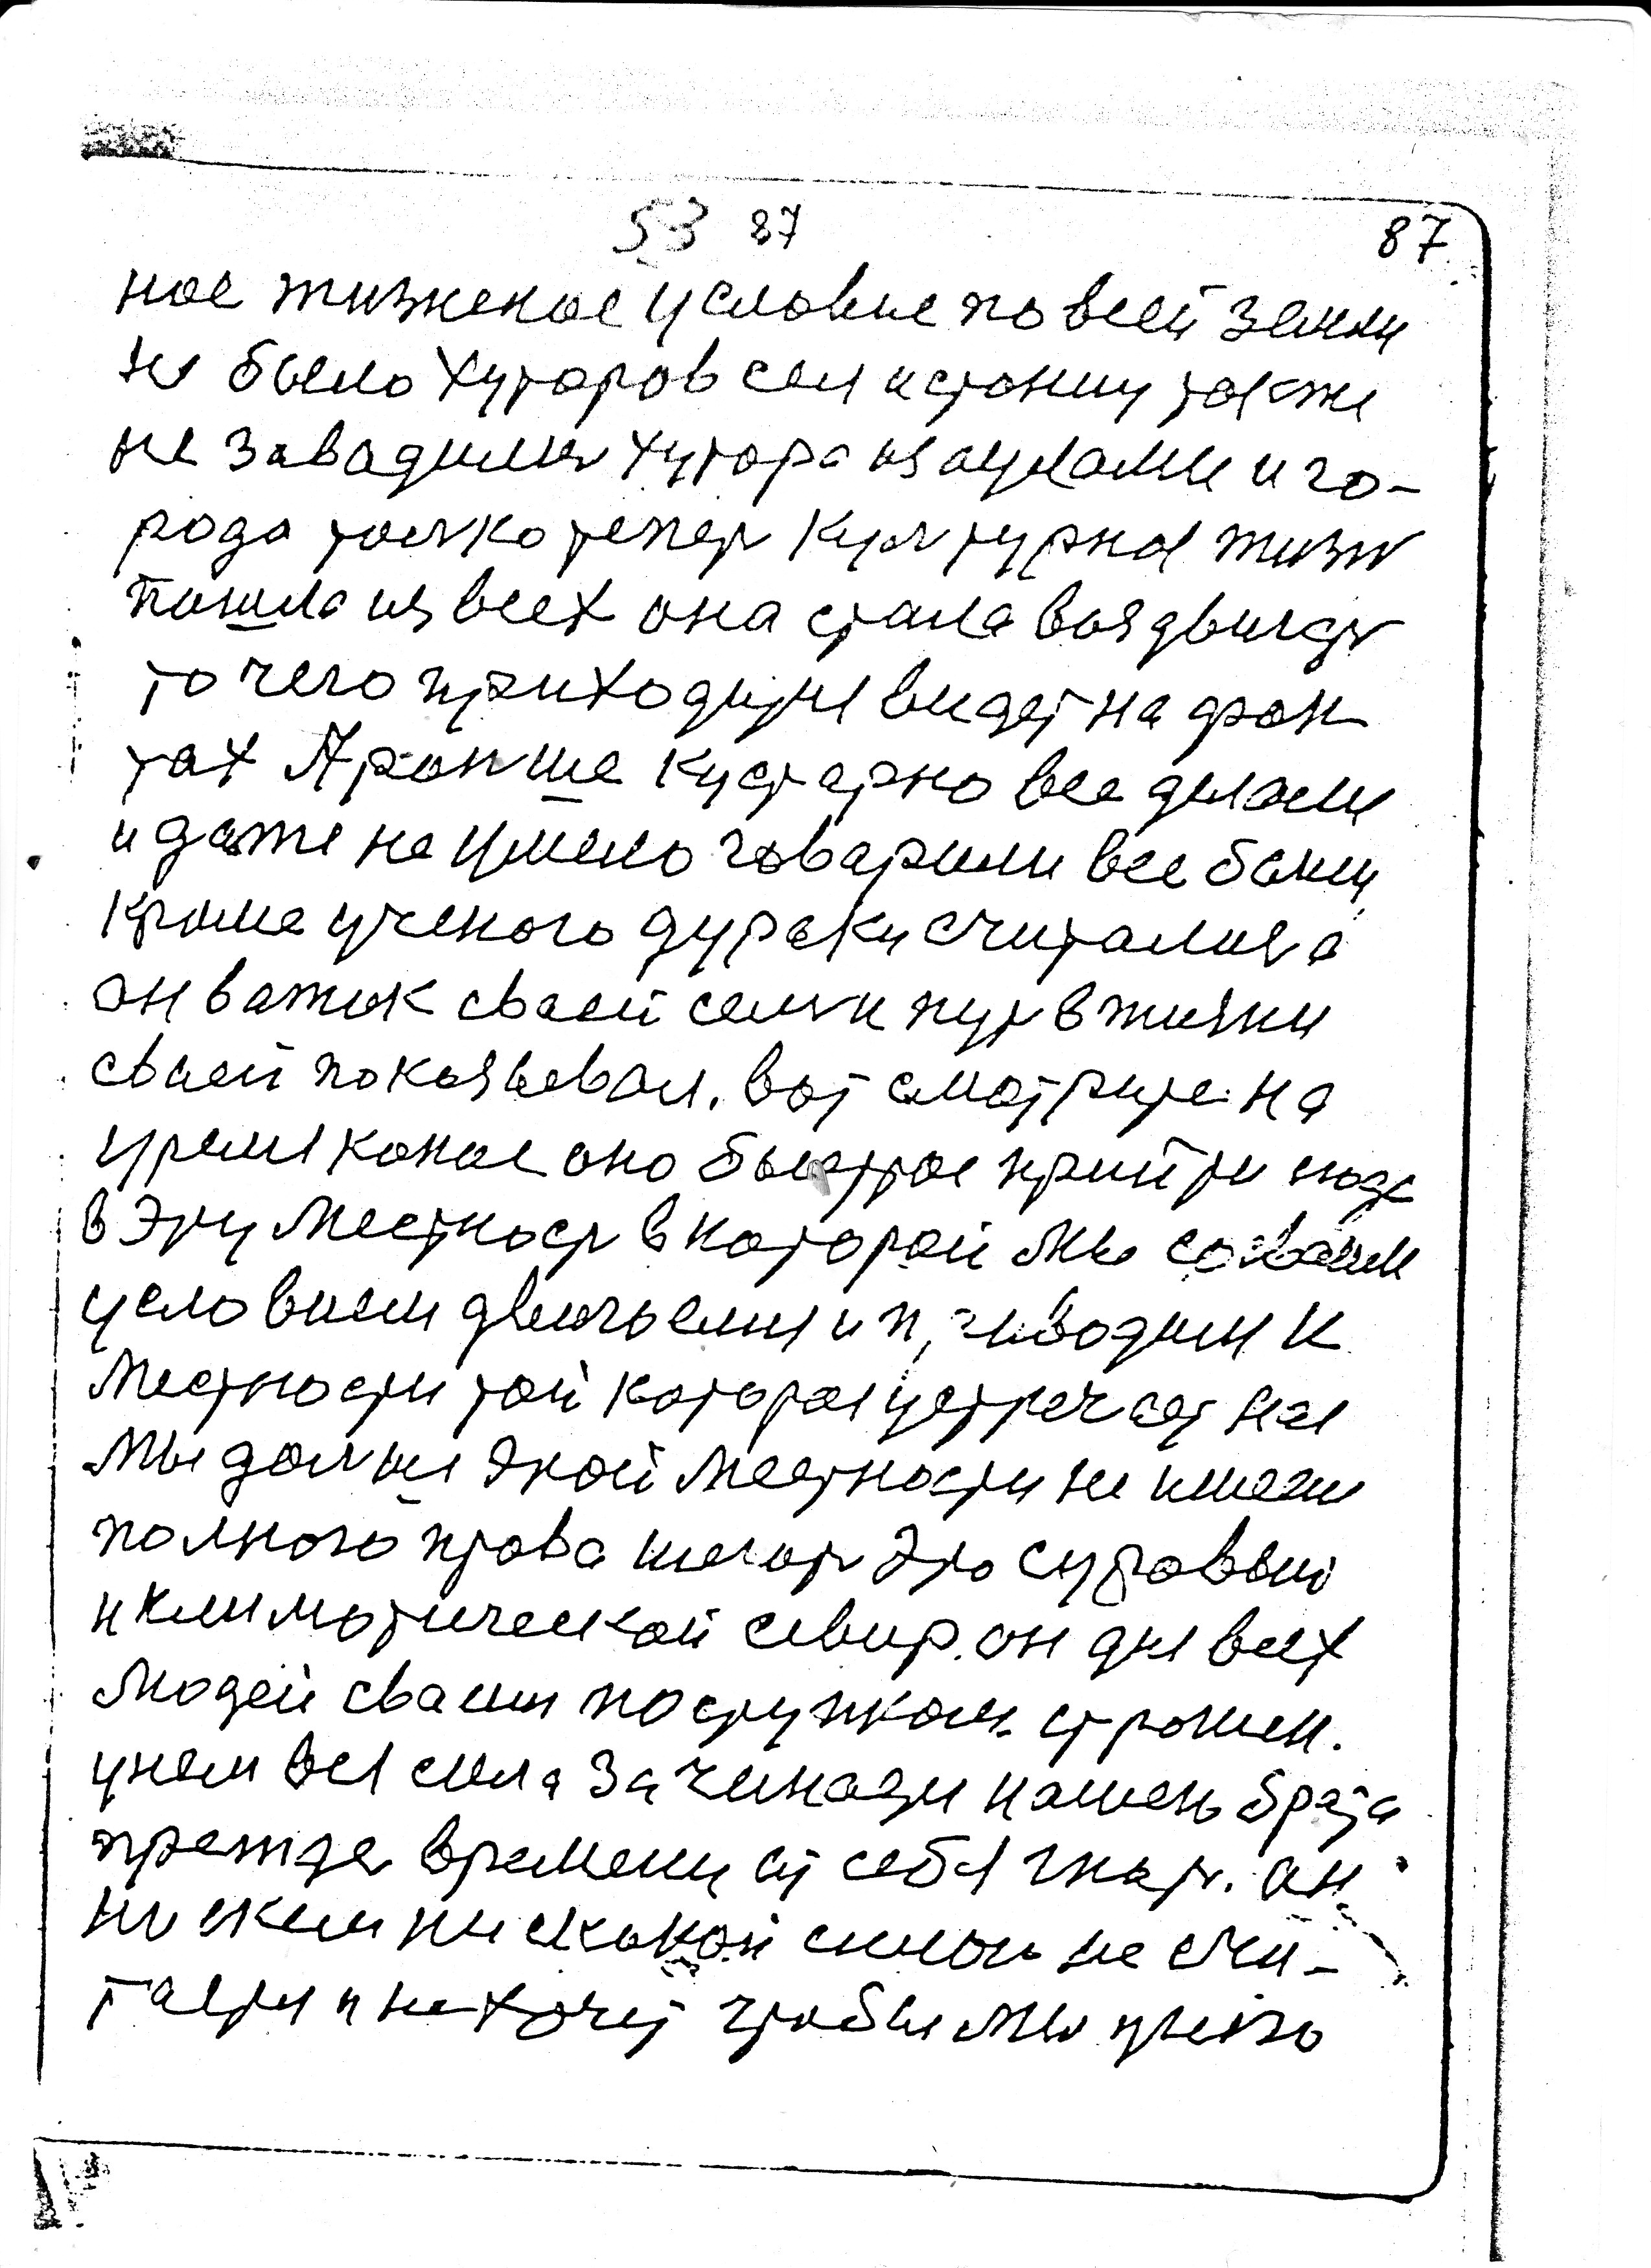 53 87 87
ное жизненое условие по всей земли
не было хуторов сел и станиц также
не заводились хутора из аулами и го-
рода только тепер культурная жизнь
пошла из всех она стала воздвигать
то чего приходится видеть на фрон
тах А раньше кустарно все делали
и даже не умело говорили все были
кроме ученого дураки считались а
он важок своей семьи путь в жизни
своей показывал. вот смотрите на
время какое оно быстрое прийти
в эту местность в которой мы со своим
условием двигаемся и п, иводим к
местности той которая устречает нас
мы должны этой местности не имели
полного права шагать это суровый
и климатической север. он для всех
людей своим поступком страшен.
у нем вся сила зачинается нашего брата
прежде времени от себя гнать. он
ни с кем ни с какой силою не счи-
тается и не хочет чтобы мы